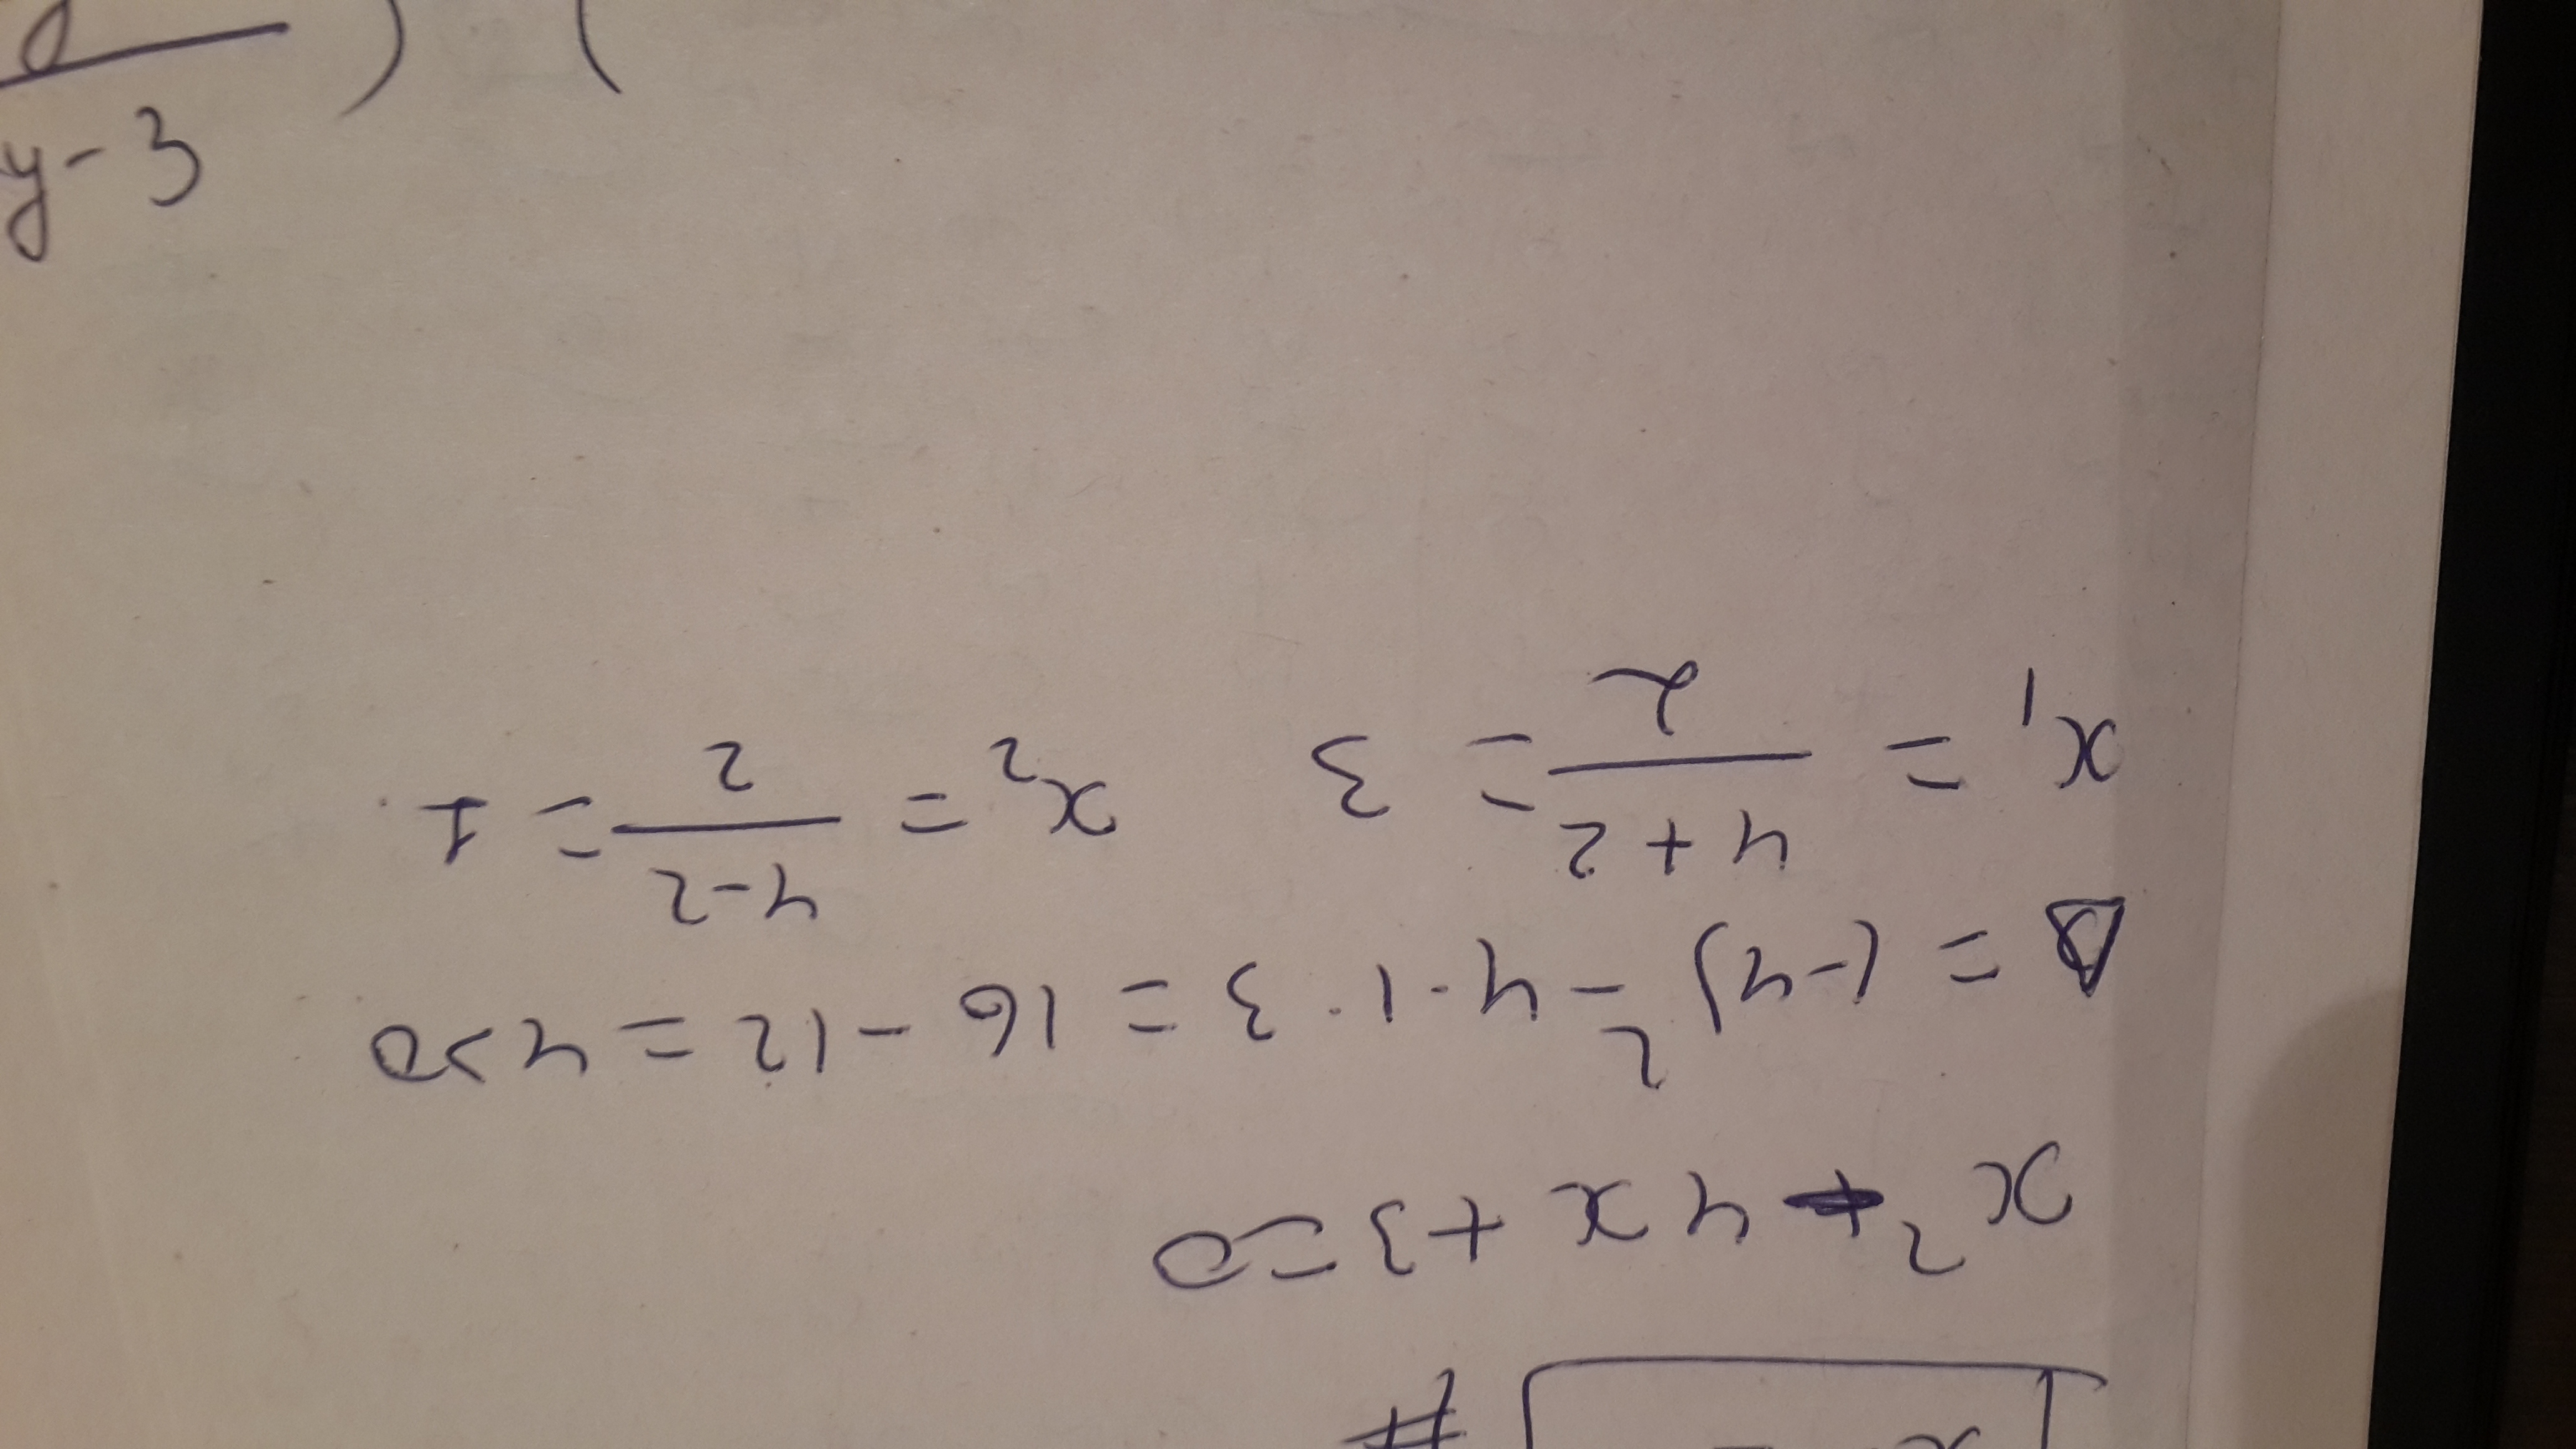 y-3
x² - 4x + 3 = 0
= (-4)² - 4 · 1 · 3 = 16 - 12 = 4 > 0
x₁ = (4+2)/2 = 3   x₂ = (4-2)/2 = 1